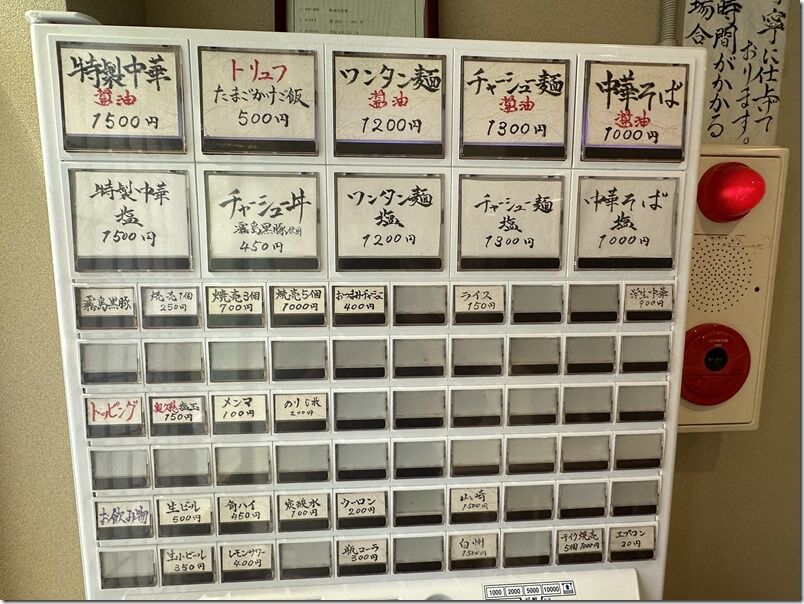 特製中華
醤油
1500円
トリュフ
たまごかけご飯
500円
ワンタン麺
醤油
1200円
チャーシュー麺
醤油
1300円
中華そば
醤油
1000円
特製中華
塩
1500円
チャーシュー丼
霧島黒豚使用
450円
ワンタン麺
塩
1200円
チャーシュー麺
塩
1300円
中華そば
塩
1000円
霧島黒豚
焼売1個
250円
焼売3個
700円
焼売5個
1000円
おつまみチャーシュー
400円
ライス
150円
900円
トッピング
味玉
150円
メンマ
100円
のり5枚
200円
お飲み物
生ビール
500円
角ハイ
450円
炭酸水
100円
ウーロン
200円
山崎
1500円
生小ビール
350円
レモンサワー
400円
瓶コーラ
300円
白州
1500円
テイク焼売
5個1000円
エプロン
20円
1000 2000 5000 10000
寧に仕上げて
おります。
時間がかかる
場合